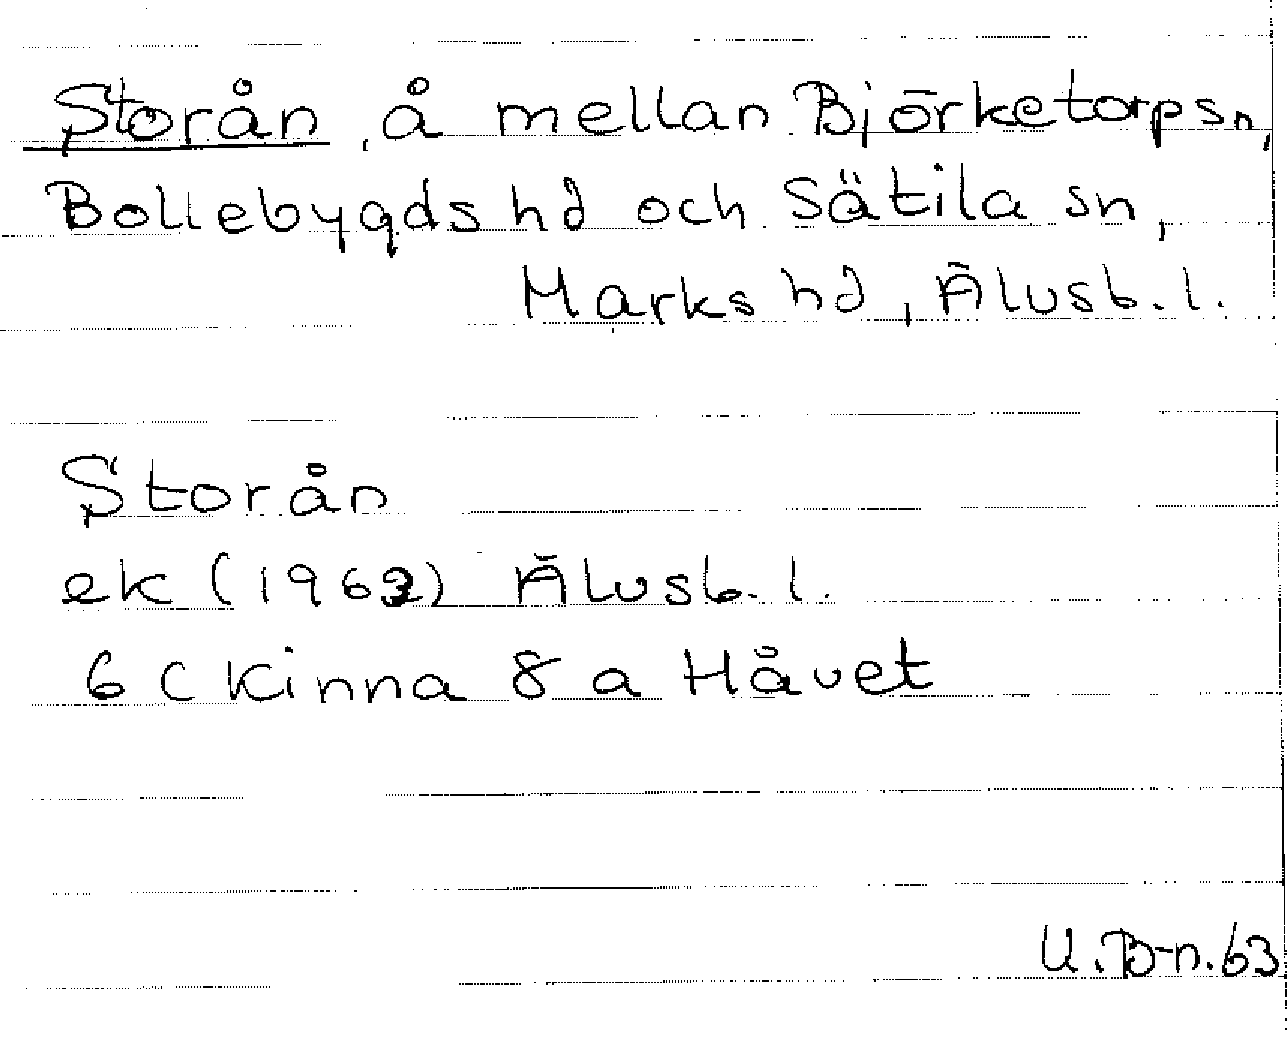 Storån, å mellan Björketorp sn,
Bollebygds hd och Sätila sn,
Marks hd, Älvsb. l.
Storån
ek (1963) Älvsb. l.
6 C Kinna 8 a Håvet
U.B-n. 63